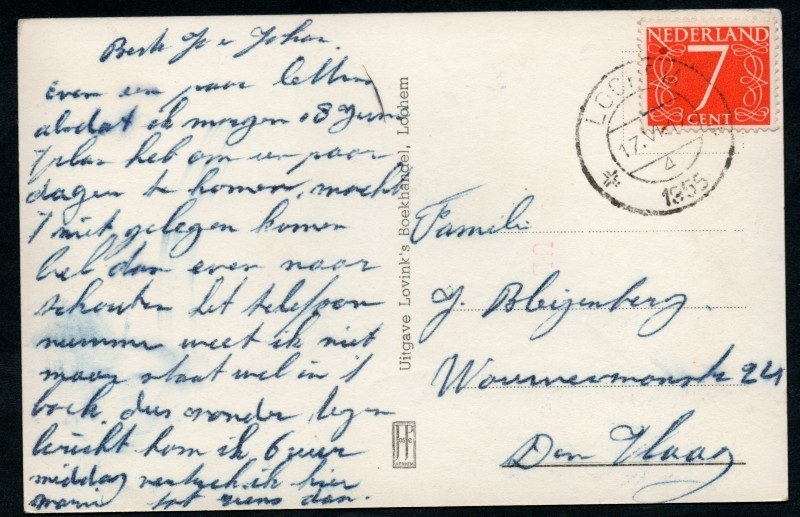 Beste Jo e Johan.
Even een paar letters
alsdat ik morgen 18 Juni
't plan heb om een paar
dagen te komen, mocht
't niet gelegen komen
bel dan even naar
schouten het telefoon
nummer weet ik niet
maar staat wel in 't
boek, dus zonder tegen
bericht kom ik 6 uur
middag vertrek ik hier
tot ziens dan.
Uitgave Lovink's Boekhandel, Lochem
JP
ARNHEM
NEDERLAND
7
CENT
LOCHEM
17.VI
4
1955
Familie
J. Bleizenberg.
Wouwermanstr 24
Den Haag